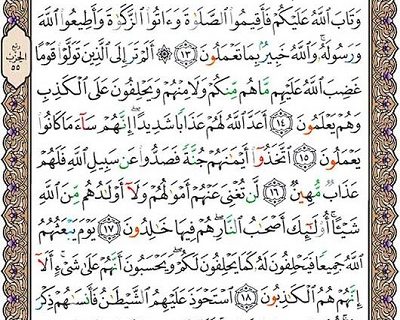 وَتَابَ ٱللَّهُ عَلَيۡكُمۡ فَأَقِيمُواْ ٱلصَّلَوٰةَ وَءَاتُواْ ٱلزَّكَوٰةَ وَأَطِيعُواْ ٱللَّهَ
وَرَسُولَهُۥۚ وَٱللَّهُ خَبِيرُۢ بِمَا تَعۡمَلُونَ ١٣ ۞ أَلَمۡ تَرَ إِلَى ٱلَّذِينَ تَوَلَّوۡاْ قَوۡمًا
غَضِبَ ٱللَّهُ عَلَيۡهِم مَّا هُم مِّنكُمۡ وَلَا مِنۡهُمۡ وَيَحۡلِفُونَ عَلَى ٱلۡكَذِبِ
وَهُمۡ يَعۡلَمُونَ ١٤ أَعَدَّ ٱللَّهُ لَهُمۡ عَذَابٗا شَدِيدًاۖ إِنَّهُمۡ سَآءَ مَا كَانُواْ
يَعۡمَلُونَ ١٥ ٱتَّخَذُوٓاْ أَيۡمَٰنَهُمۡ جُنَّةٗ فَصَدُّواْ عَن سَبِيلِ ٱللَّهِ فَلَهُمۡ
عَذَابٞ مُّهِينٞ ١٦ لَّن تُغۡنِيَ عَنۡهُمۡ أَمۡوَٰلُهُمۡ وَلَآ أَوۡلَٰدُهُم مِّنَ ٱللَّهِ
شَيۡـًٔاۚ أُوْلَٰٓئِكَ أَصۡحَٰبُ ٱلنَّارِۖ هُمۡ فِيهَا خَٰلِدُونَ ١٧ يَوۡمَ يَبۡعَثُهُمُ
ٱللَّهُ جَمِيعٗا فَيَحۡلِفُونَ لَهُۥ كَمَا يَحۡلِفُونَ لَكُمۡ وَيَحۡسَبُونَ أَنَّهُمۡ عَلَىٰ شَيۡءٍۚ أَلَآ
إِنَّهُمۡ هُمُ ٱلۡكَٰذِبُونَ ١٨ ٱسۡتَحۡوَذَ عَلَيۡهِمُ ٱلشَّيۡطَٰنُ فَأَنسَىٰهُمۡ ذِكۡرَ
ربع
الحزب
٥٥